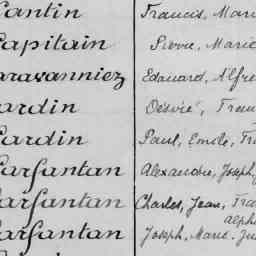 antin Francis, Mari
apitain Pierre, Marie
aravanniez Edouard, Alfre
ardin Désiré, Fran
Cardin Paul, Emile, Fr
arfantan Alexandre, Joseph
arfantan Charles, Jean, Fra
Alph
arfantan Joseph, Marie, Ju